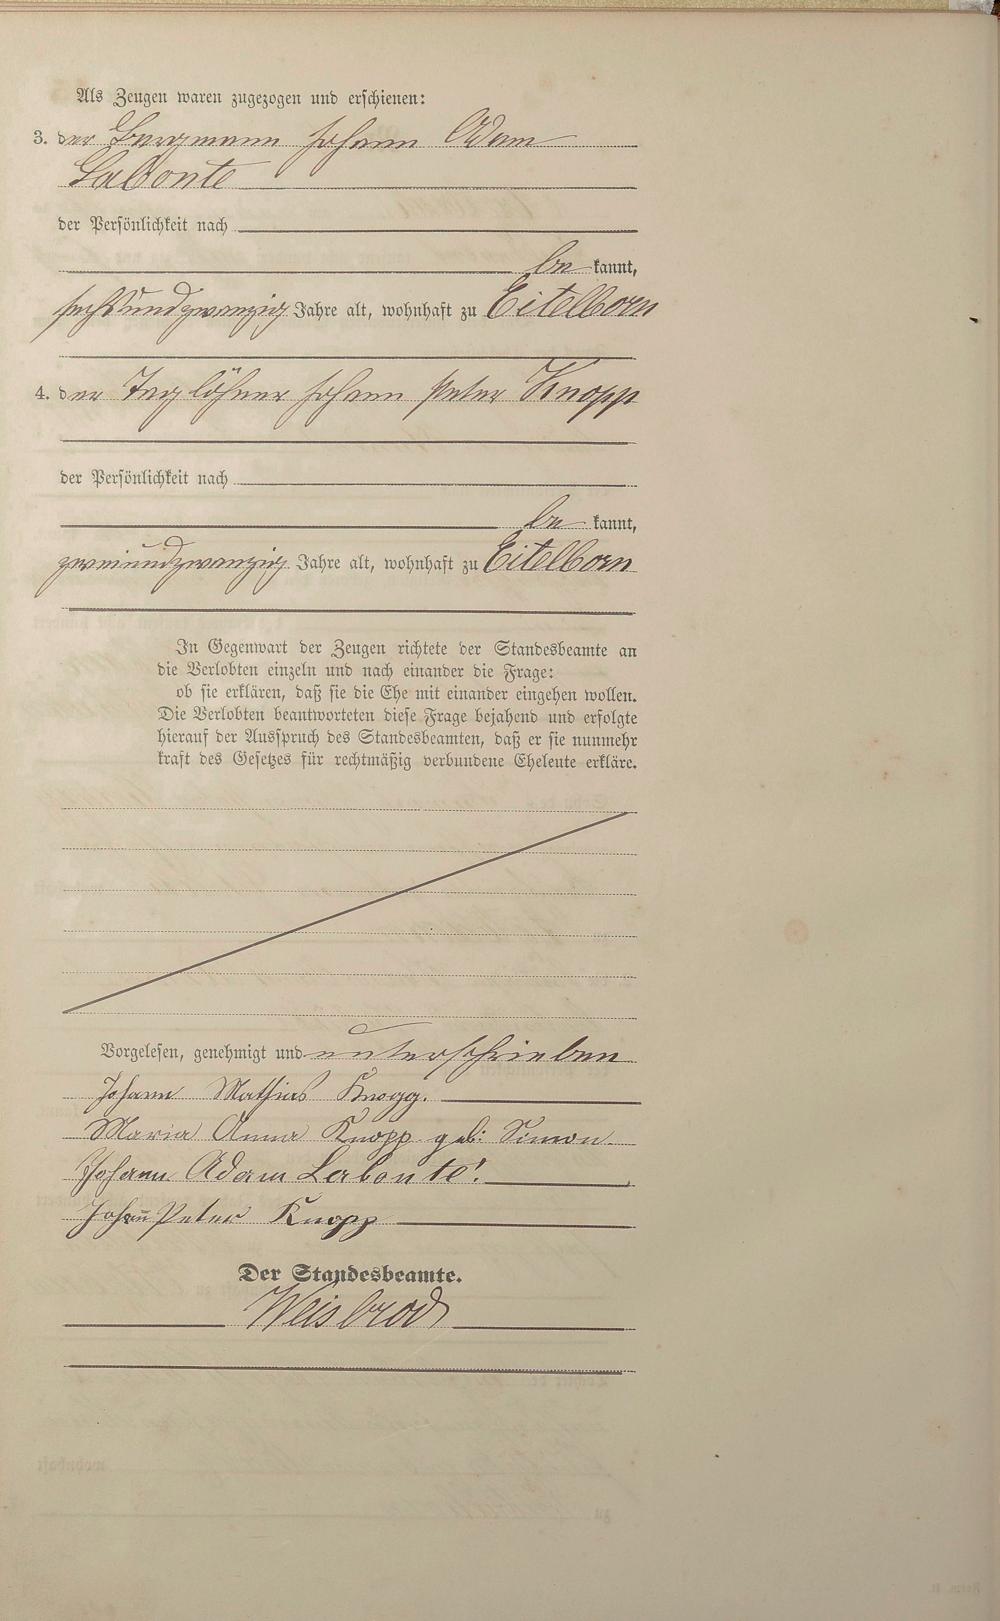 Als Zeugen waren zugezogen und erschienen:
3. der Bergmann Johann Adam
Labonte
der Persönlichkeit nach
be kannt,
sechsundzwanzig Jahre alt, wohnhaft zu Eitelborn
4. der Taglöhner Johann Peter Knopp
der Persönlichkeit nach
be kannt,
zweiundzwanzig Jahre alt, wohnhaft zu Eitelborn
In Gegenwart der Zeugen richtete der Standesbeamte an
die Verlobten einzeln und nach einander die Frage:
ob sie erklären, daß sie die Ehe mit einander eingehen wollen.
Die Verlobten beantworteten diese Frage bejahend und erfolgte
hierauf der Ausspruch des Standesbeamten, daß er sie nunmehr
kraft des Gesetzes für rechtmäßig verbundene Eheleute erkläre.
Vorgelesen, genehmigt und unterschrieben
Johann Mathias Knopp.
Maria Anna Knopp geb: Simon.
Johann Adam Labonte!
Johann Peter Knopp
Der Standesbeamte.
Weisbrod